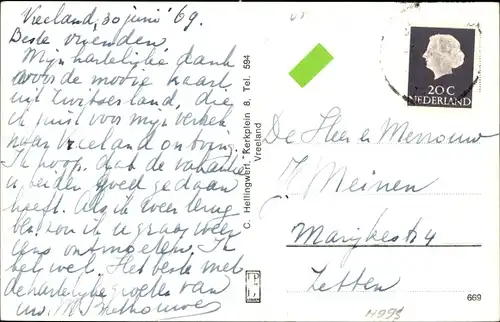 Vreeland, 30 juni '69.
Beste vrienden,
Mijn hartelijke dank
voor de mooie kaart
uit Zwitserland, die
ik juist voor mijn
naar Vreeland ontving.
Ik hoop, dat de vakantie
u beiden goed gedaan
heeft. Als ik weer terug
ben, zou ik u graag weer
eens ontmoeten. Ik
bel wel. Het beste met
de hartelijke groeten van
C. Hellingwerf, Kerkplein 8, Tel. 594
Vreeland
20 C
NEDERLAND
De Heer en Mevrouw
J. Meinen
Marijkestr 4
Zetten
669